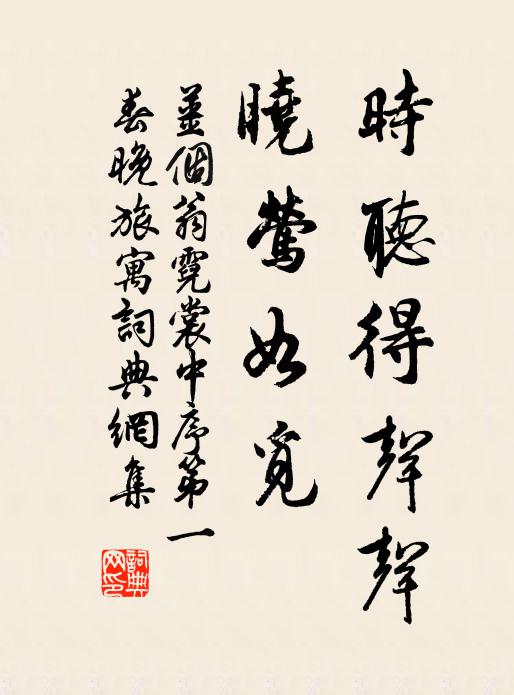 時聽得聲聲
曉鶯如覓
姜個翁霓裳中序第一
春晚旅寓詞典網集
詞典
网印